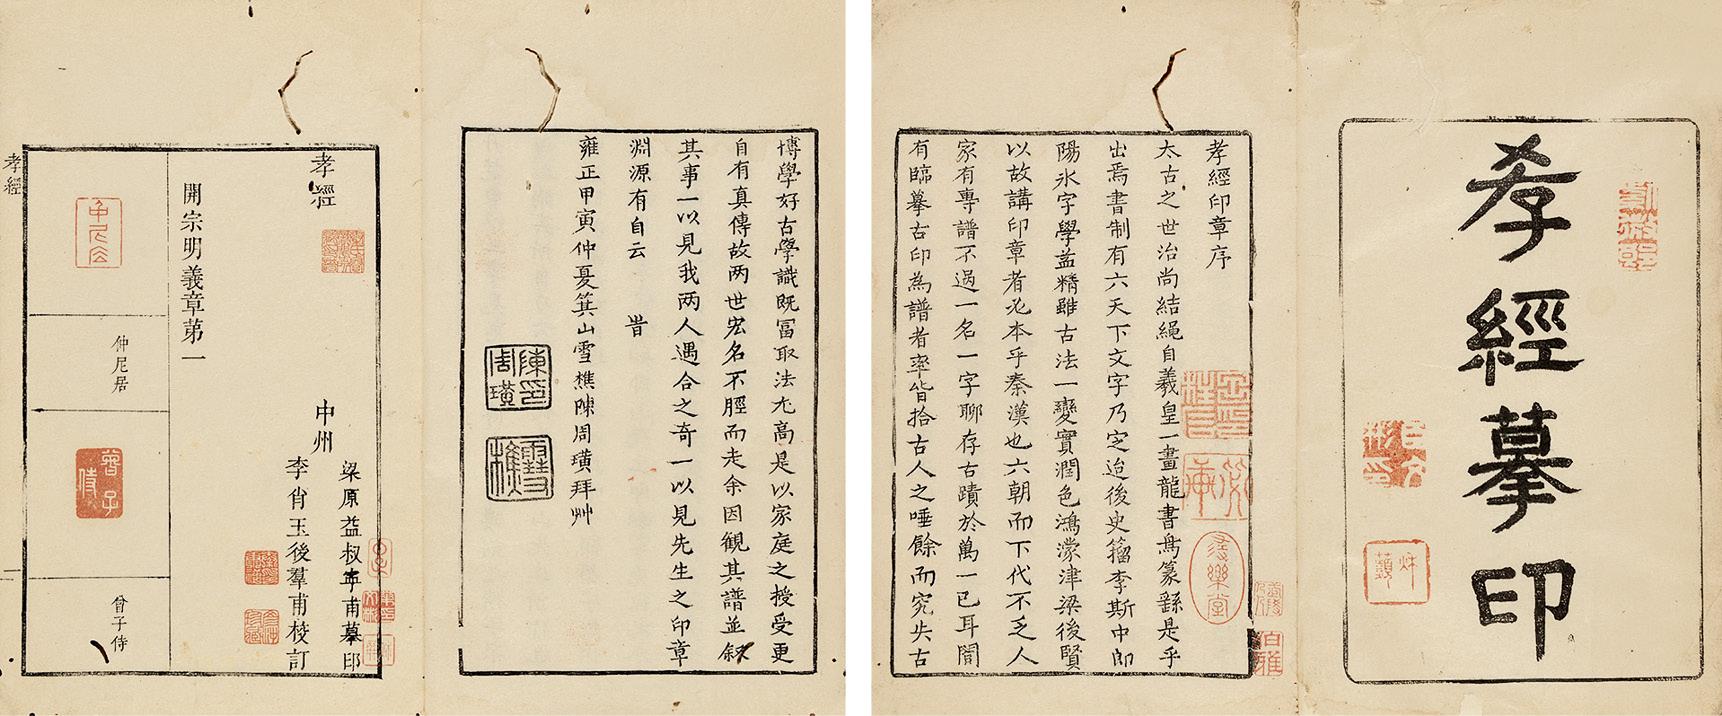 孝經摹印
孝經印章序
太古之世治尚結繩自羲皇一畫龍書鳥篆繇是乎
出焉書制有六天下文字乃定迨後史籀李斯中郎
陽氷字學益精雖古法一變實潤色鴻濛津梁後賢
以故講印章者必本乎秦漢也六朝而下代不乏人
家有專譜不過一名一字聊存古蹟於萬一已耳間
有臨摹古印為譜者率皆拾古人之唾餘而究失古
博學好古學識既富取法尤高是以家庭之授受更
自有真傳故两世宏名不脛而走余因観其譜並叙
其事一以見我两人遇合之奇一以見先生之印章
淵源有自云 旹
雍正甲寅仲夏箕山雪樵陳周璜拜艸
陳周璜印
雪樵
孝經
中州
梁原益叔年甫摹印
李肖玉後羣甫校訂
開宗明義章第一
仲尼居
仲尼居
曾子侍
曾子侍
孝經